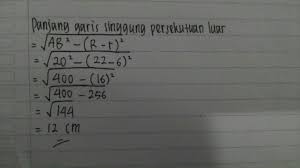 Panjang garis singgung persekutuan luar
= √AB² - (R - r)²
= √20² - (22-6)²
= √400 - (16)²
= √400 - 256
= √144
= 12 cm